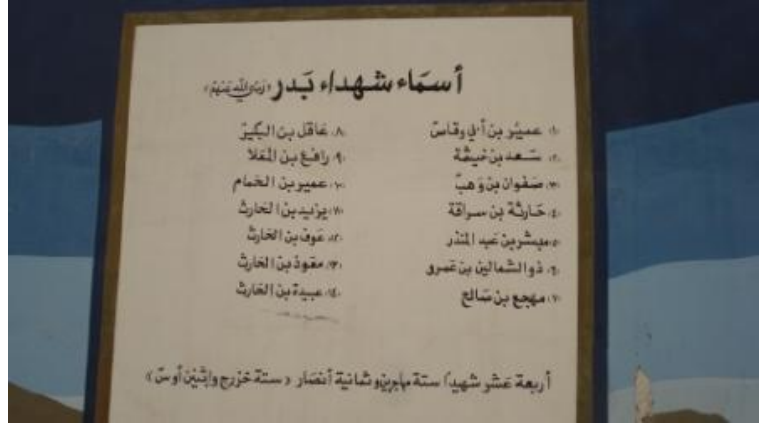 أسماء شهداء بدر (رضي الله عنهم)
١- عمير بن أبي وقاس
٢- سعد بن خيثمة
٣- صفوان بن وهب
٤- حارثة بن سراقة
٥- مبشر بن عبد المنذر
٦- ذو الشمالين بن عمرو
٧- مهجع بن صالح
٨- عاقل بن البكير
٩- رافع بن المعلا
١٠- عمير بن الحمام
١١- يزيد بن الحارث
١٢- عوف بن الحارث
١٣- معوذ بن الحارث
١٤- عبيدة بن الحارث
أربعة عشر شهيداً ستة مهاجرين وثمانية أنصار (ستة خزرج واثنين أوس)